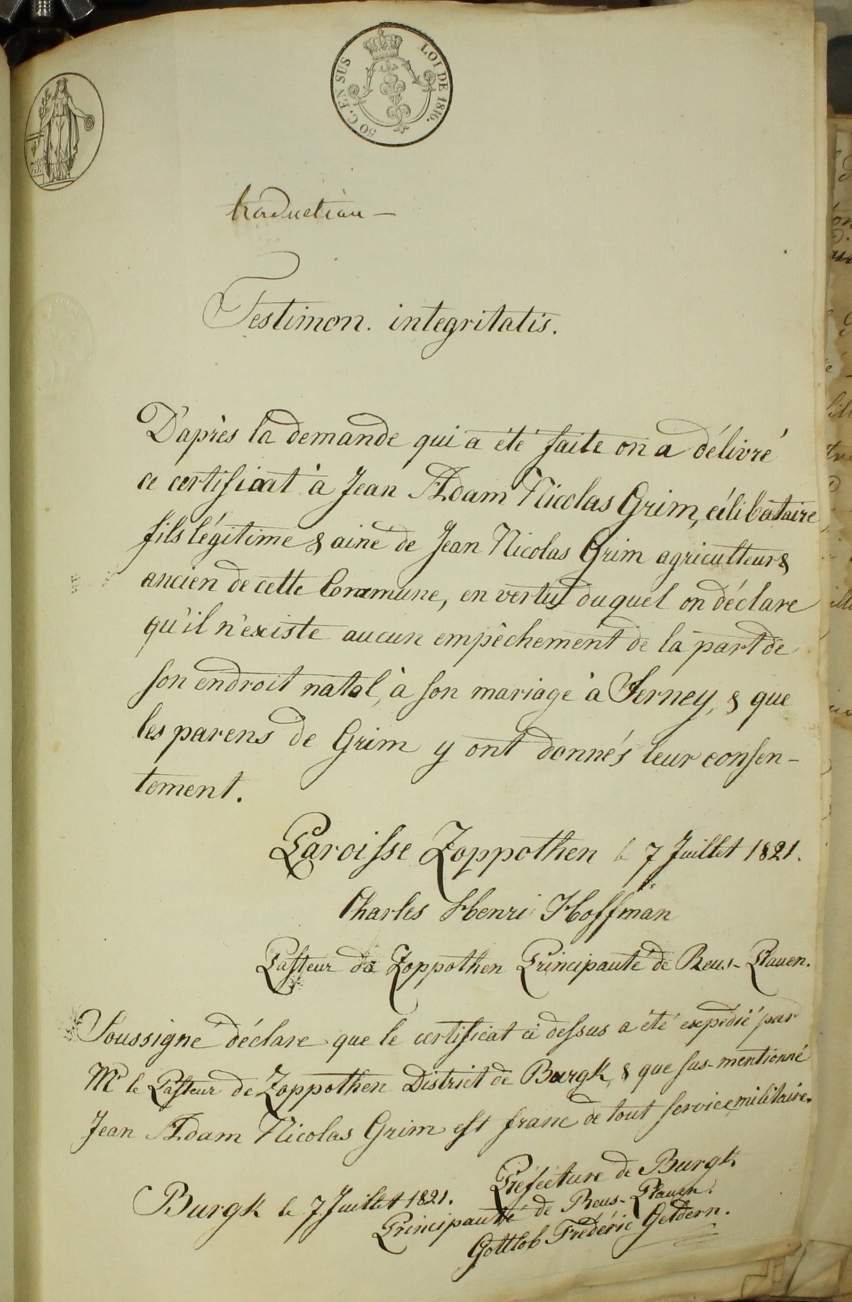 50 C. EN SUS LOI DE 1816.
traduction —
Testimon. integritatis.
D'après la demande qui a été faite on a délivré
ce certificat à Jean Adam Nicolas Grim, célibataire
fils légitime & ainé de Jean Nicolas Grim agriculteur &
ancien de cette Commune, en vertu duquel on déclare
qu'il n'existe aucun empêchement de la part de
son endroit natal, à son mariage à Ferney, & que
les parens de Grim y ont donnés leur consen-
tement.
Paroisse Zoppothen le 7 Juillet 1821.
Charles Henri Hoffman
Pasteur de Zoppothen Principauté de Reus-Plauen.
Soussigné déclare que le certificat ci dessus a été expédié par
Mr le Pasteur de Zoppothen District de Burgk, & que sus-mentionné
Jean Adam Nicolas Grim est franc de tout service militaire.
Burgk le 7 Juillet 1821.
Préfecture de Burgk
Principauté de Reus-Plauen.
Gottlob Fréderic Geldern.